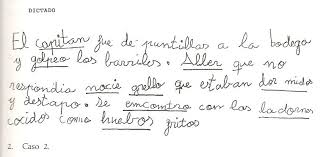 DICTADO
El capitan fue de puntillas a la bodega
y golpeo los barriles. Aller que no
respondia nocie grello que estaban dor midos
y destapo. Se emcomtro con las la dornes
cocidos como huebos gritos
2. Caso 2.